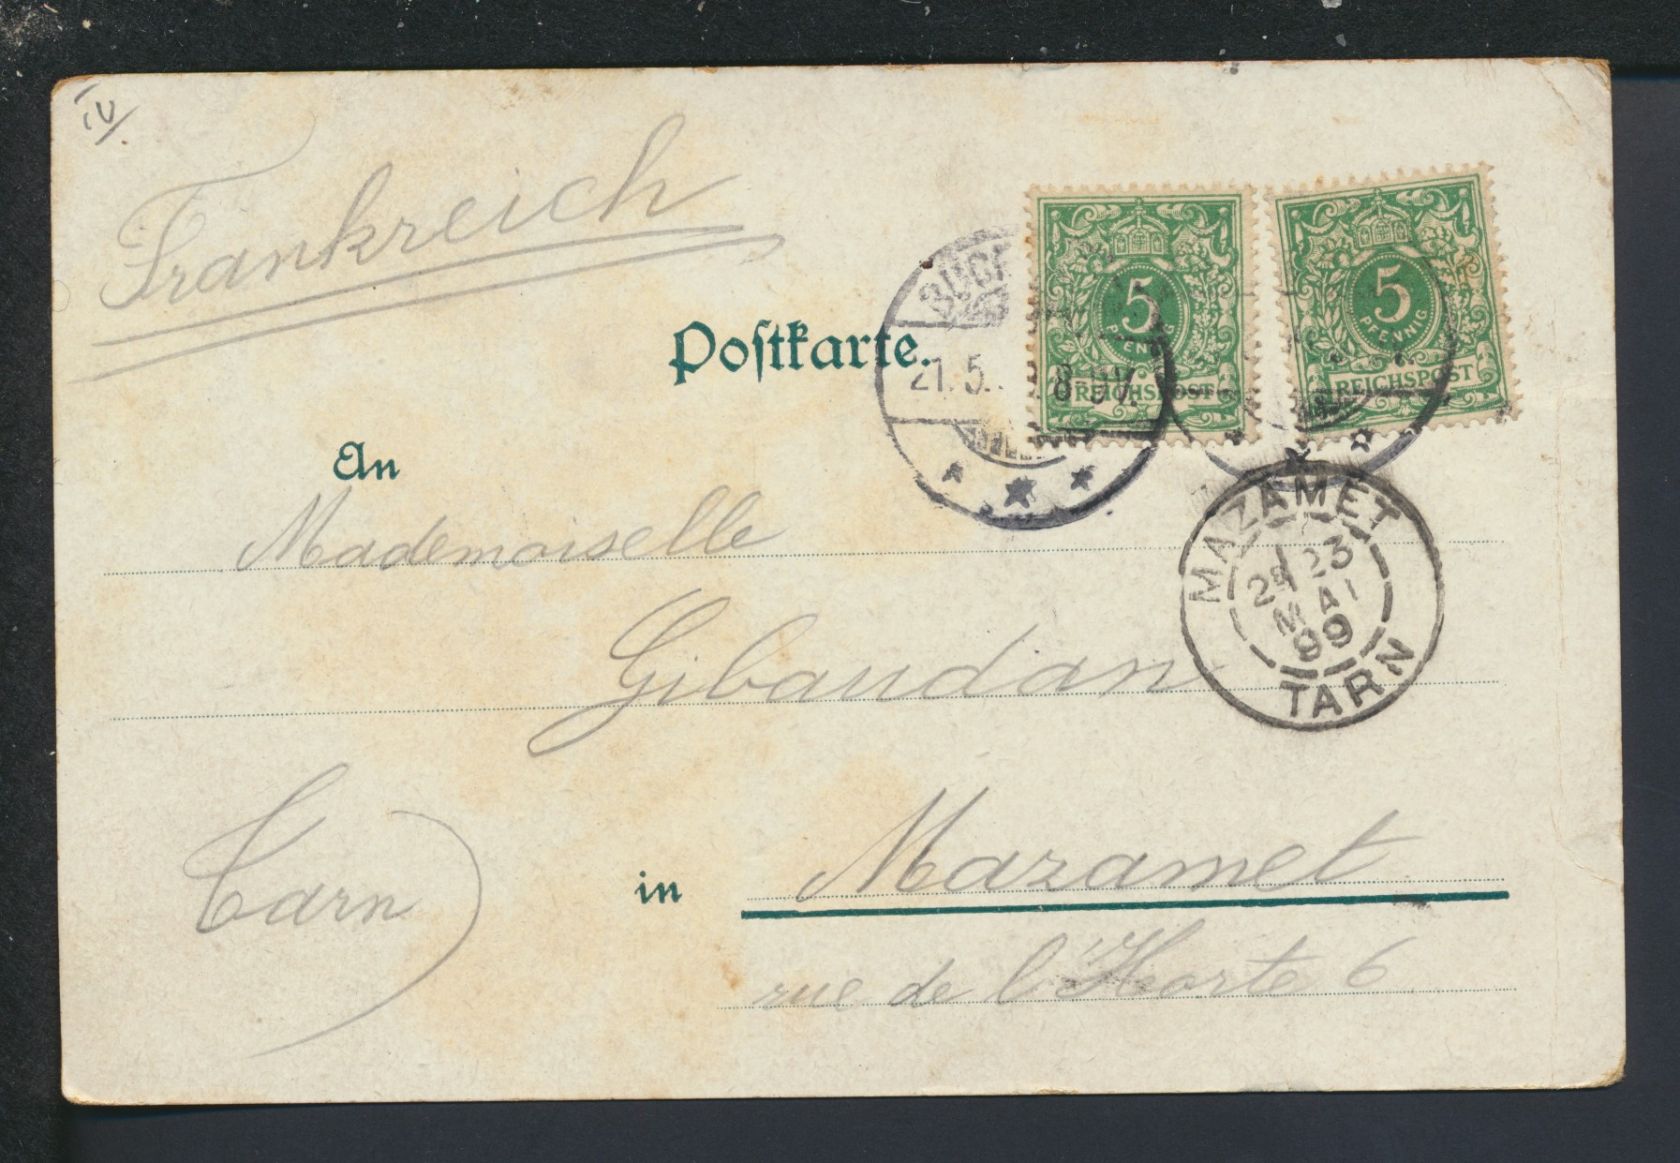 IV
Frankreich
Postkarte.
21.5. 8-9V.
5
PFENNIG
REICHSPOST
5
PFENNIG
REICHSPOST
An
Mademoiselle
Gibaudan
MAZAMET
2E 23
MAI
99
TARN
Tarn)
in Mazamet
rue de l'Horte 6